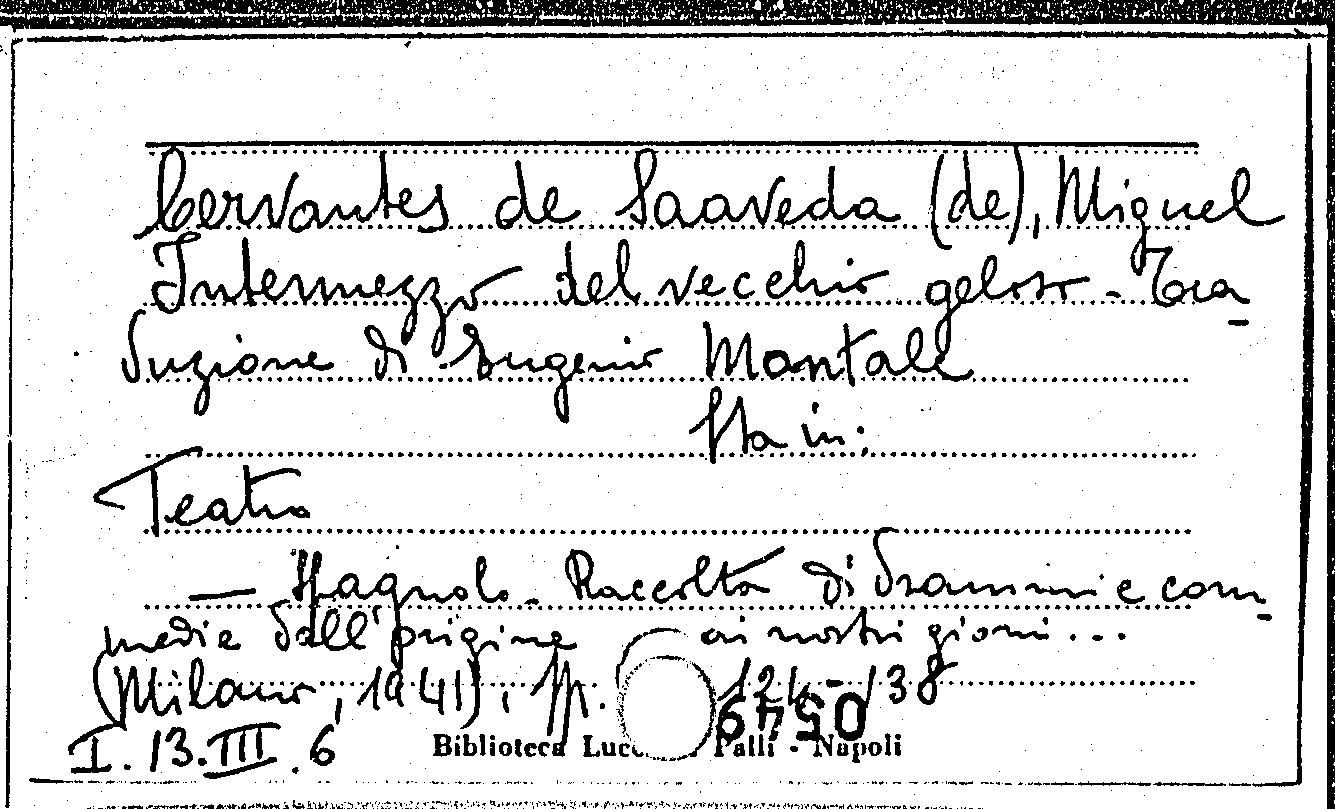 Cervantes de Saaveda (de), Miguel
Intermezzo del vecchio geloso - Tra-
duzione di Eugenio Montale
Sta in:
Teatro
— Spagnolo - Raccolta di drammi e com-
medie dall'origine ai nostri giorni...
(Milano, 1941), pp. 124-138
I. 13. III. 6
Biblioteca Palli - Napoli